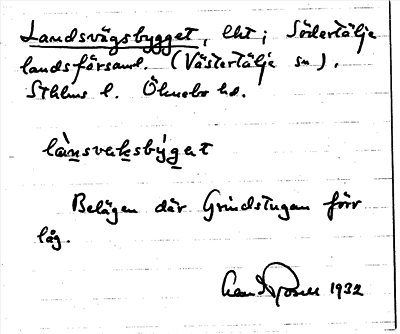 Landsvägsbygget, lht i Södertälje
landsförsaml. (Västertälje sn).
Sthlms l. Öknebo hd.
lànsvaksbýgat
Belägen där Grindstugan förr
låg.
1932